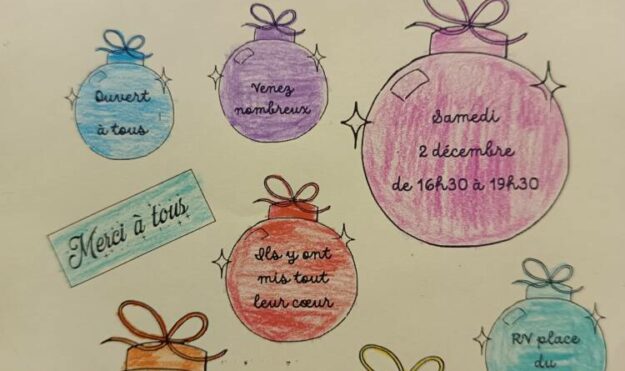 Ouvert
à tous
Venez
nombreux
Samedi
2 décembre
de 16h30 à 19h30
Merci à tous
Ils y ont
mis tout
leur cœur
RV place
du